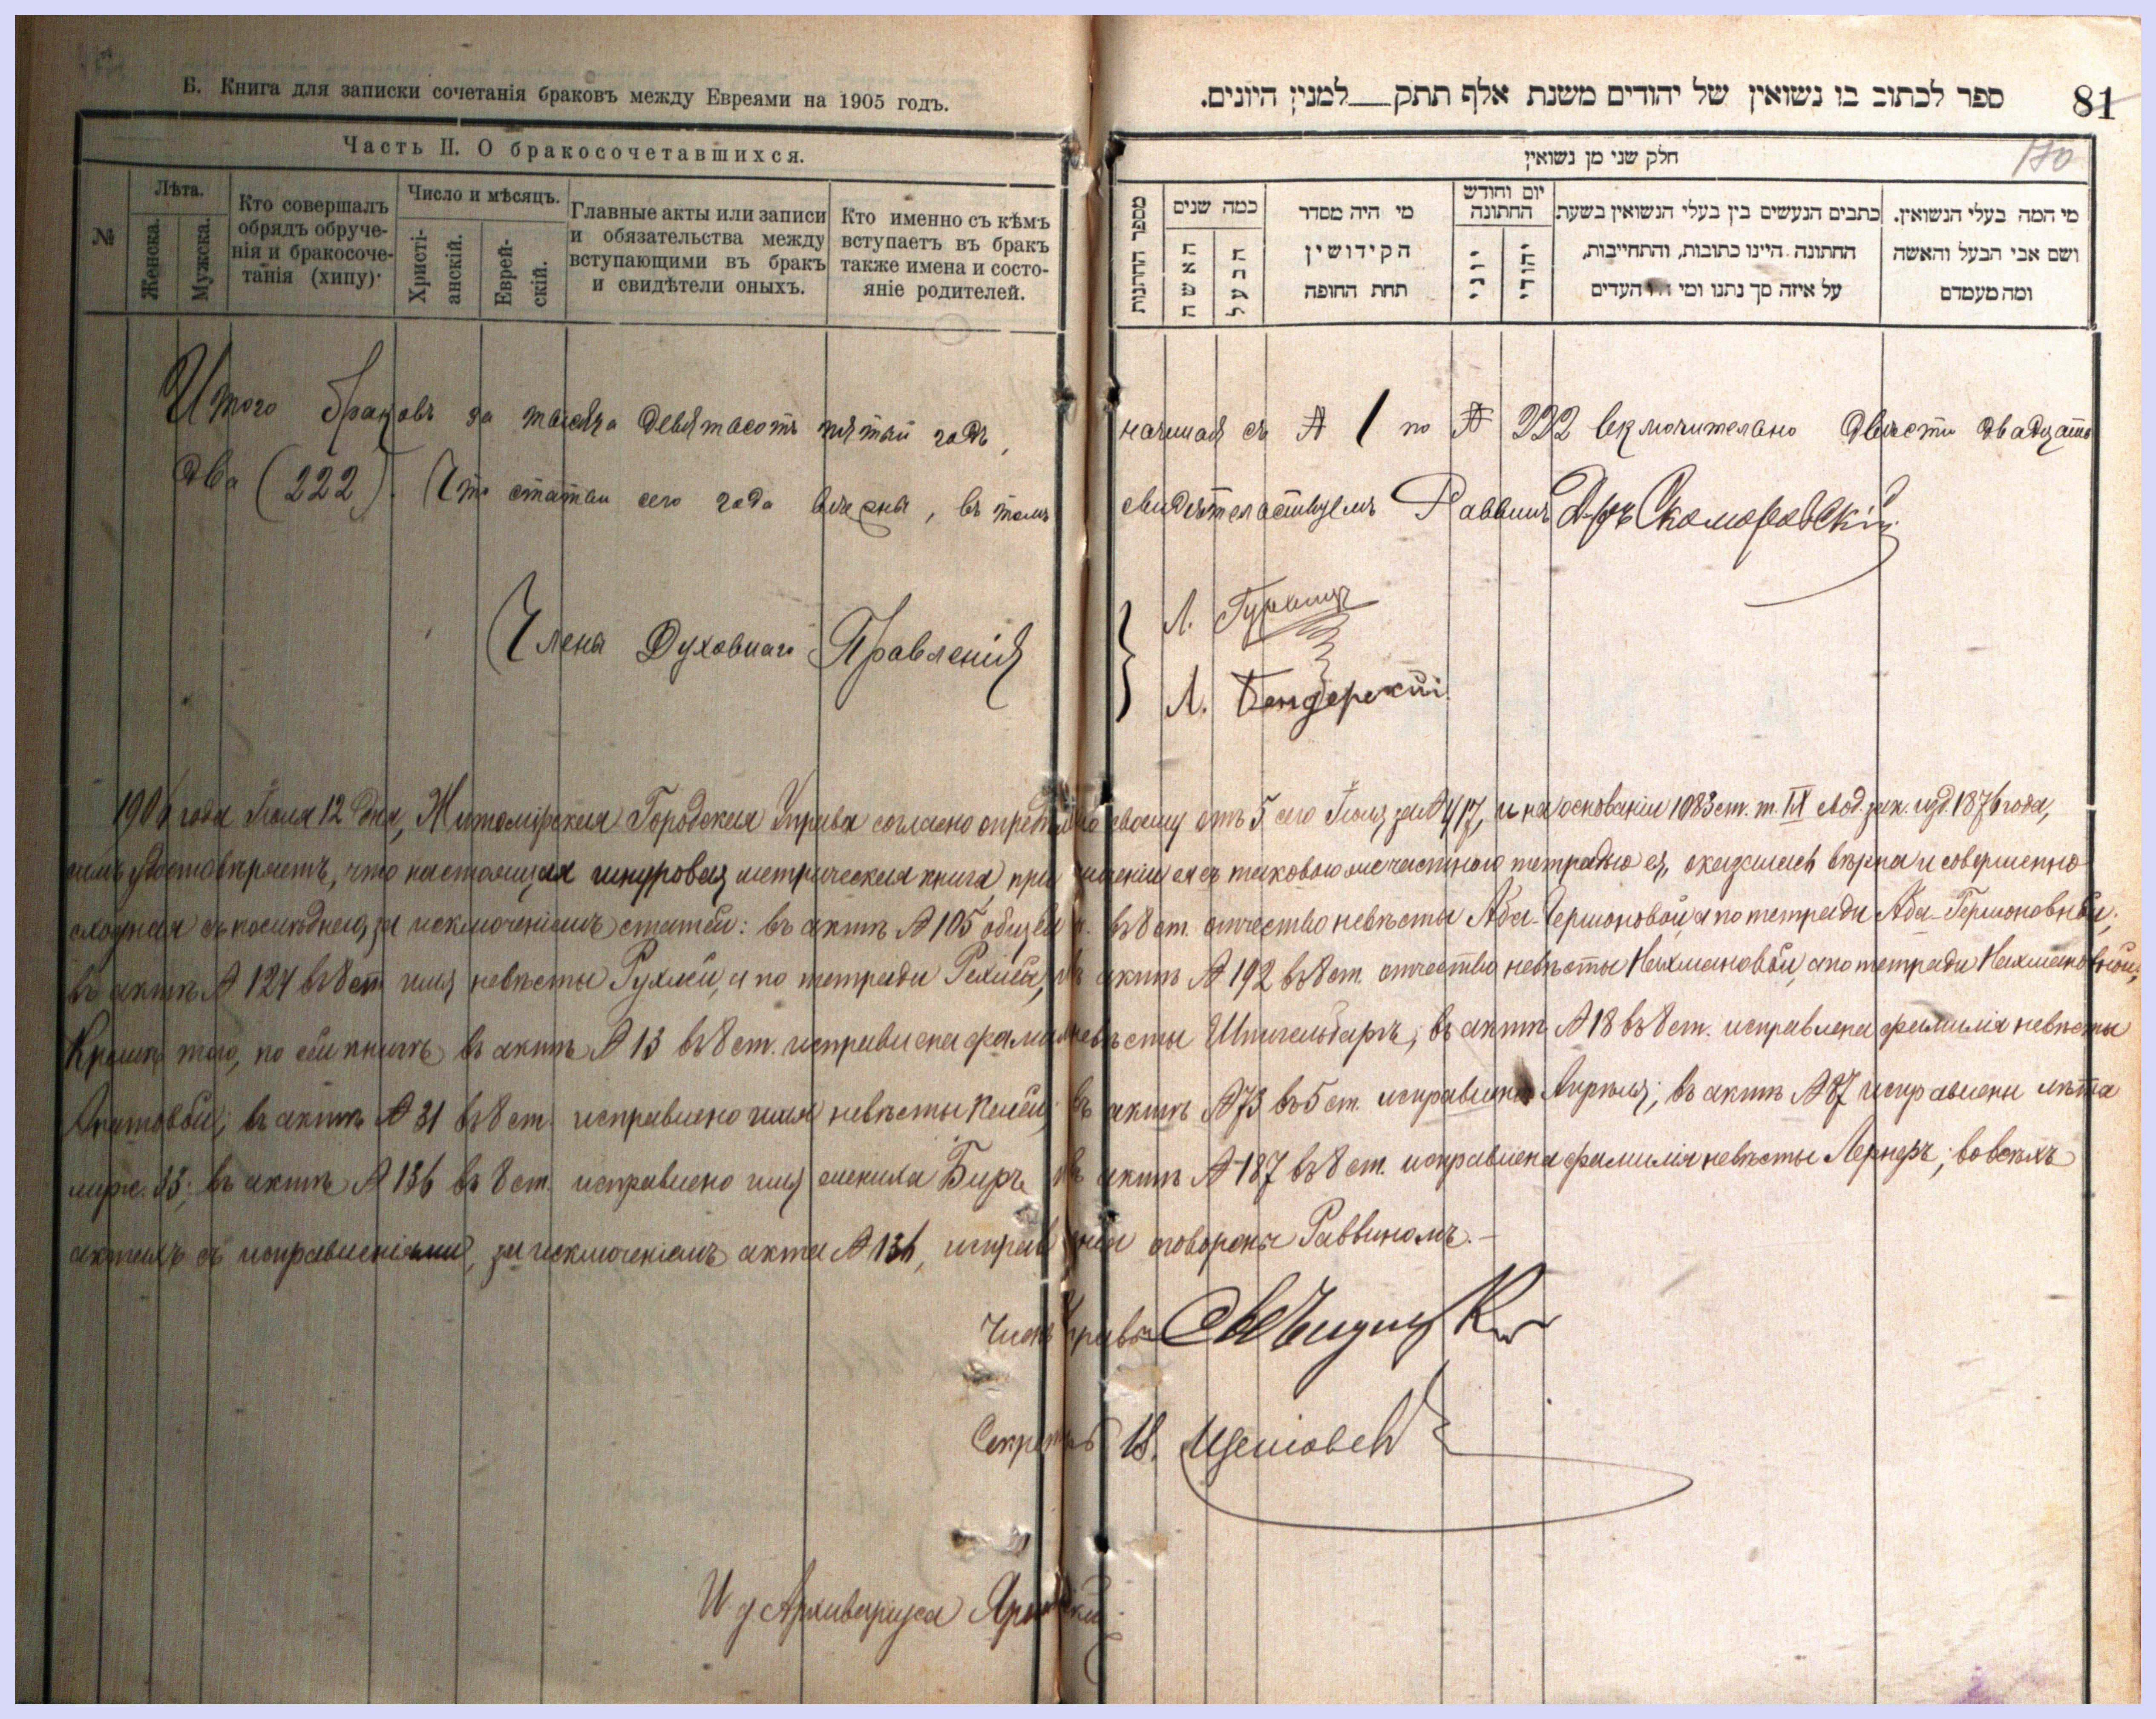 Б. Книга для записки сочетанія браковъ между Евреями на 1905 годъ.
ספר לכתוב בו נשואין של יהודים משנת אלף תתק למנין היונים.
81
Часть II. О бракосочетавшихся.
חלק שני מן נשואין
180
№
Лѣта.
Женска.
Мужска.
Кто совершалъ
обрядъ обруче-
нія и бракосоче-
танія (хипу).
Число и мѣсяцъ.
Христі-
анскій.
Еврей-
скій.
Главные акты или записи
и обязательства между
вступающими въ бракъ
и свидѣтели оныхъ.
Кто именно съ кѣмъ
вступаетъ въ бракъ
также имена и состо-
яніе родителей.
כמה שנים
האשה
הבעל
מי היה מסדר
הקידושין
תחת החופה
יום וחודש
החתונה
יוני
יהודי
כתבים הנעשים בין בעלי הנשואין בשעת
החתונה היינו כתובות, והתחייבות,
על איזה סך נתנו ומי העדים
מי המה בעלי הנשואין.
ושם אבי הבעל והאשה
ומה מעמדם
Итого браковъ за тысяча девятасотъ пятый годъ, начиная съ № 1 по № 222 включительно двѣсти двадцать
два (222). Что статьи сего года вѣрны, въ томъ свидѣтельствуемъ Раввинъ Д-ръ Скоморовскій
Члены Духовнаго Правленія
Л. Гурвицъ
Л. Бендерскій
1906 года Іюля 12 дня, Житомірская Городская Управа согласно своему отъ 5 сего Іюля за № 417, и на основаніи 1083 ст. т. IX свод. зак. изд. 1876 года,
симъ удостовѣряетъ, что настоящая шнуровая метрическая книга при ея съ таковою же частного тетрадью ея, оказалась вѣрна и совершенно
сходная съ послѣднею, за исключеніемъ статей: въ актѣ № 105 въ 8 ст. отчество невѣсты Аба-Гершоновой, а по тетради Аба-Гершоновной;
въ актѣ № 124 въ 8 ст. имя невѣсты Рухлей, а по тетради Рехлей, въ актѣ № 192 въ 8 ст. отчество невѣсты Нахмановой, а по тетради Нахмановной;
Кромѣ того, по сей книгѣ въ актѣ № 13 въ 8 ст. исправлена фамилія невѣсты Шпигельбаръ; въ актѣ № 18 въ 8 ст. исправлена фамилія невѣсты
въ актѣ № 31 въ 8 ст. исправлено имя невѣсты въ актѣ № 73 въ 5 ст. исправлено Апрѣля; въ актѣ № 87 исправлены лѣта
мужс. 33; въ актѣ № 136 въ 8 ст. исправлено имя жениха Беръ, въ актѣ № 187 въ 8 ст. исправлена фамилія невѣсты Лернеръ; во всѣхъ
актахъ съ исправленіями, за исключеніемъ акта № 136, исправленія оговорены Раввиномъ.
Членъ Управы
Секретарь
И. д. Архиваріуса